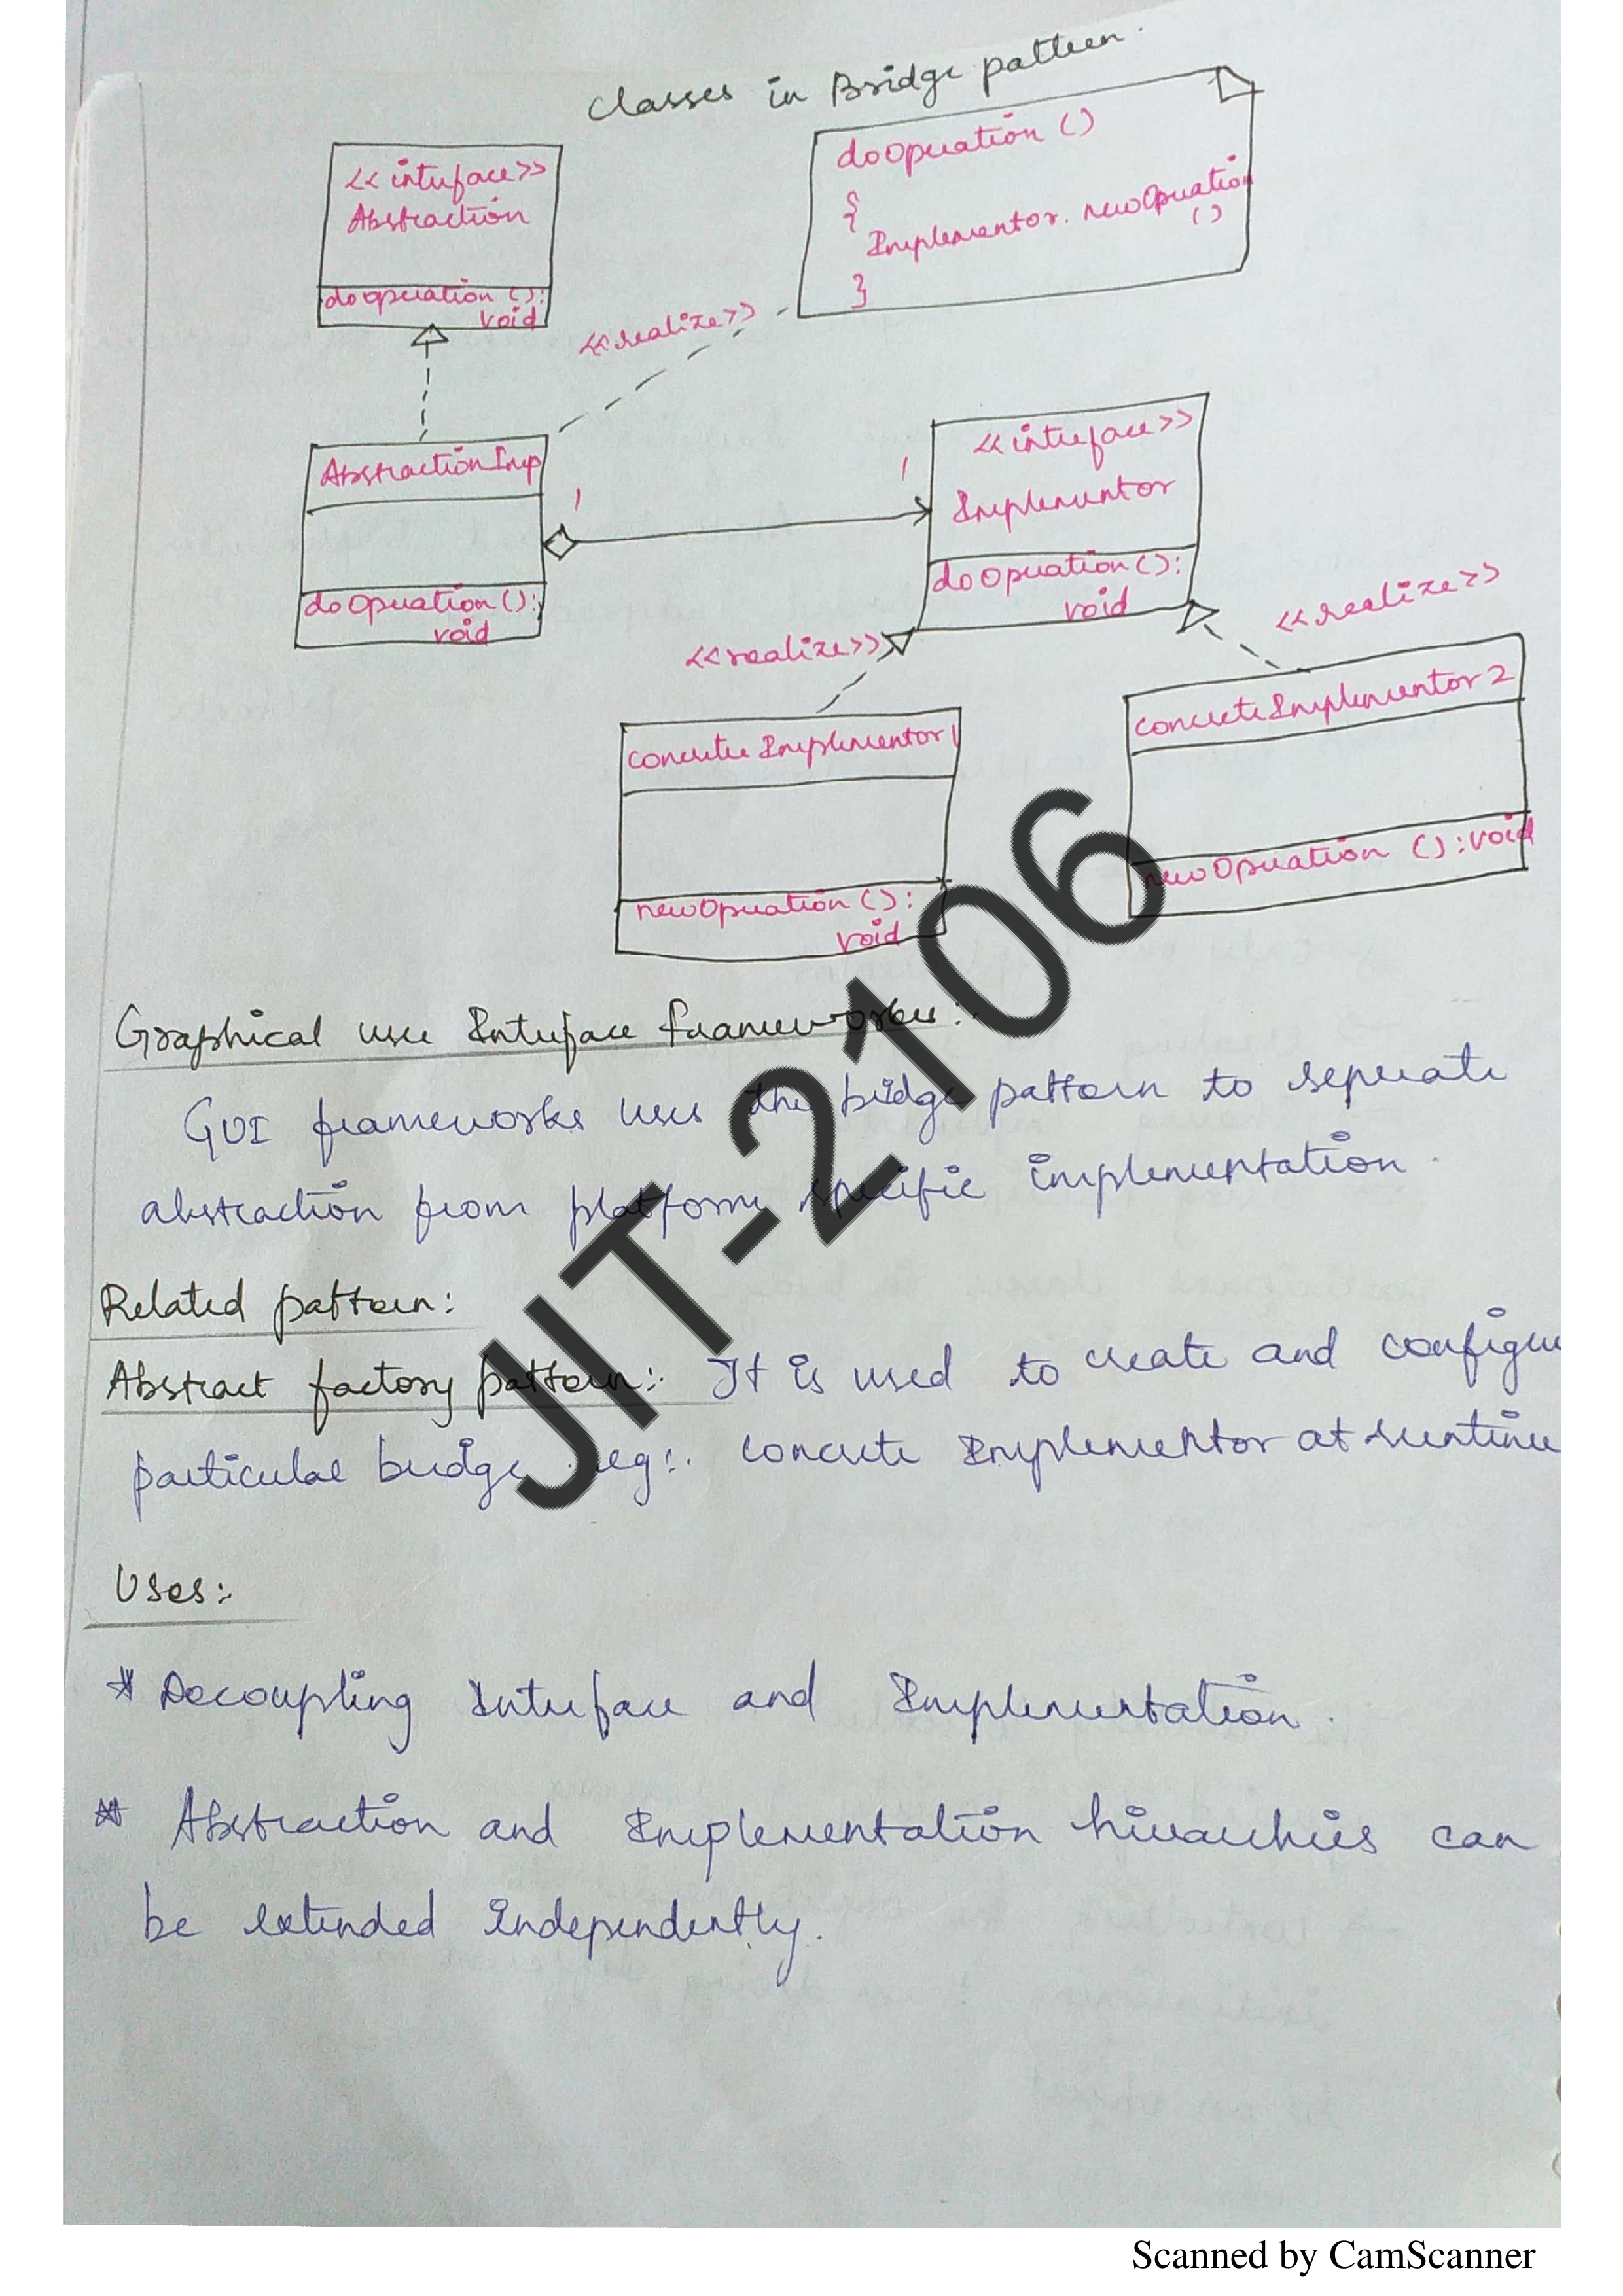 Classes in Bridge pattern.
<<interface>>
Abstraction
dooperation ():
void
doOperation ()
{
Implementor. newOperation
()
}
<<realize>>
AbstractionImp
doOperation ():
void
1
1
<<interface>>
Implementor
doOperation ():
void
<<realize>>
<<realize>>
concrete Implementor 1
newOperation ():
void
concrete Implementor 2
newOperation () : void
Graphical user Interface frameworks:-
GUI frameworks uses the bridge pattern to seperate
abstraction from platform specific implementation.
Related pattern:
Abstract factory pattern:- It is used to create and configure
particular bridge. eg:- concrete Implementor at runtime
Uses:-
* Decoupling Interface and Implementation.
* Abstraction and Implementation hierarchies can
be extended independently.
JIT-2106
Scanned by CamScanner